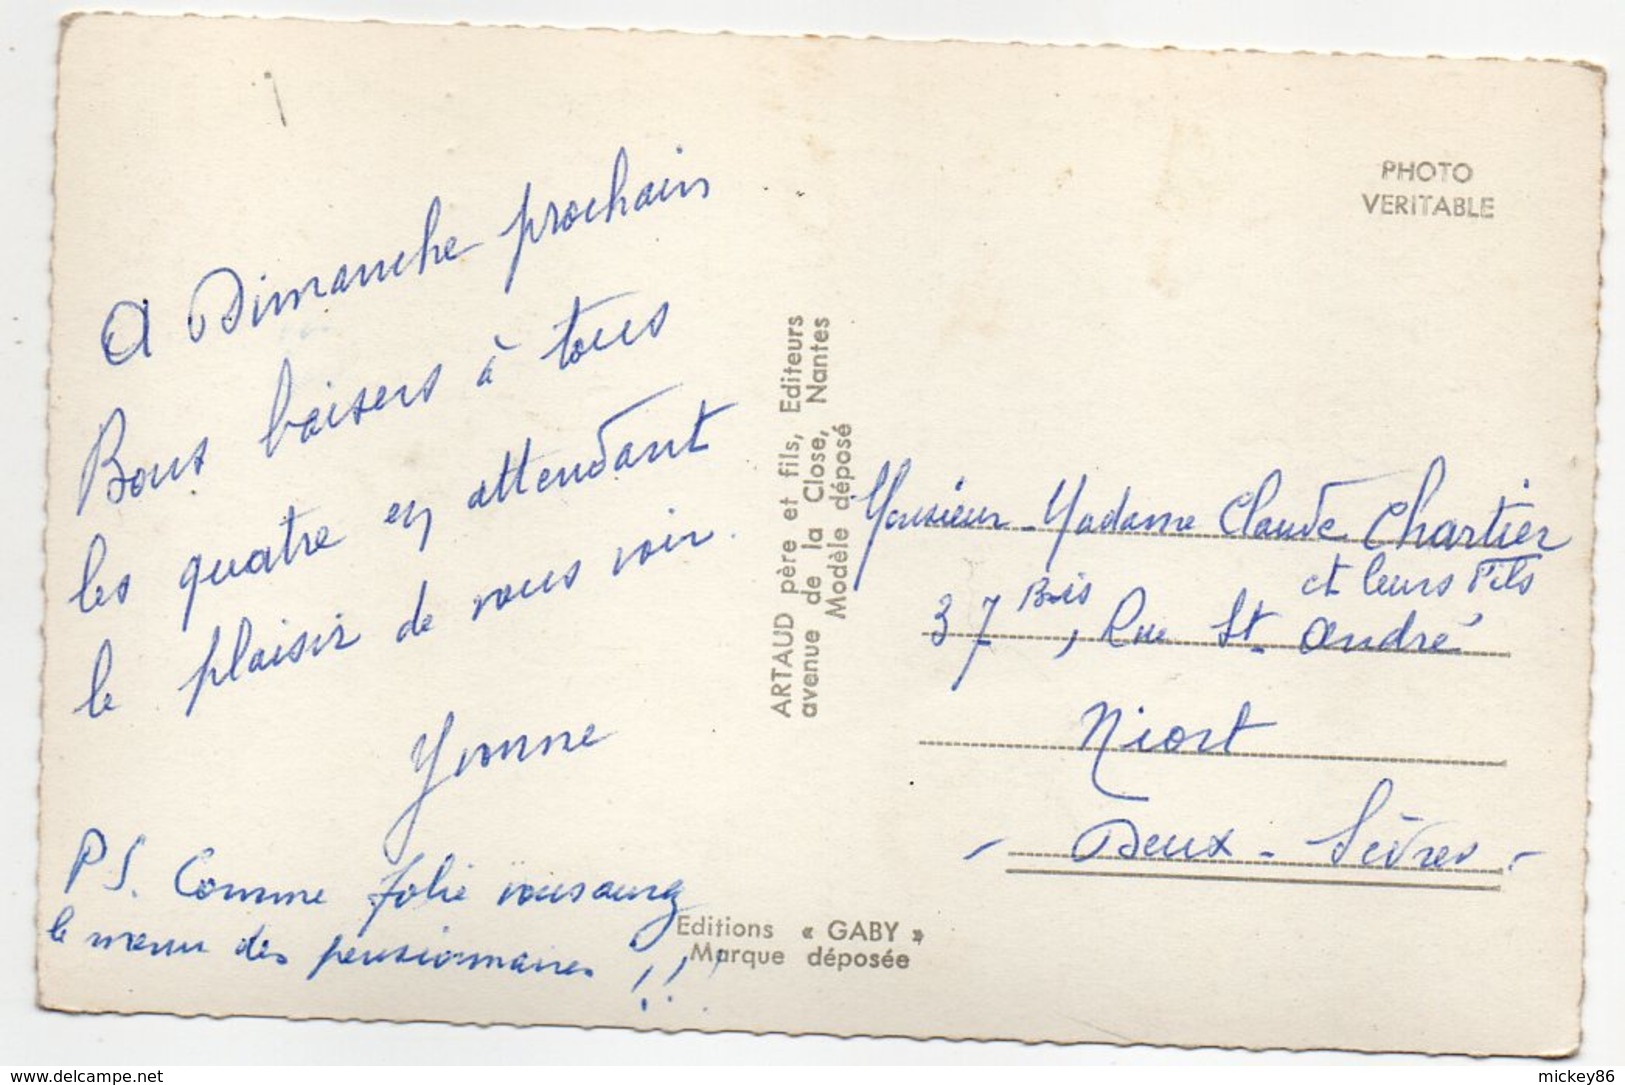 A Dimanche prochain
Bons baisers à tous
les quatre en attendant
le plaisir de vous voir.
Yvonne
PS. Comme folie vous aurez
le menu des pensionnaires !!!
ARTAUD père et fils, Editeurs
avenue de la Close, Nantes
Modèle déposé
Editions « GABY »
Marque déposée
PHOTO
VERITABLE
Monsieur - Madame Claude Chartier
et leurs Fils
37 Bis, Rue St. André
Niort
- Deux - Sèvres -
www.delcampe.net
mickey86